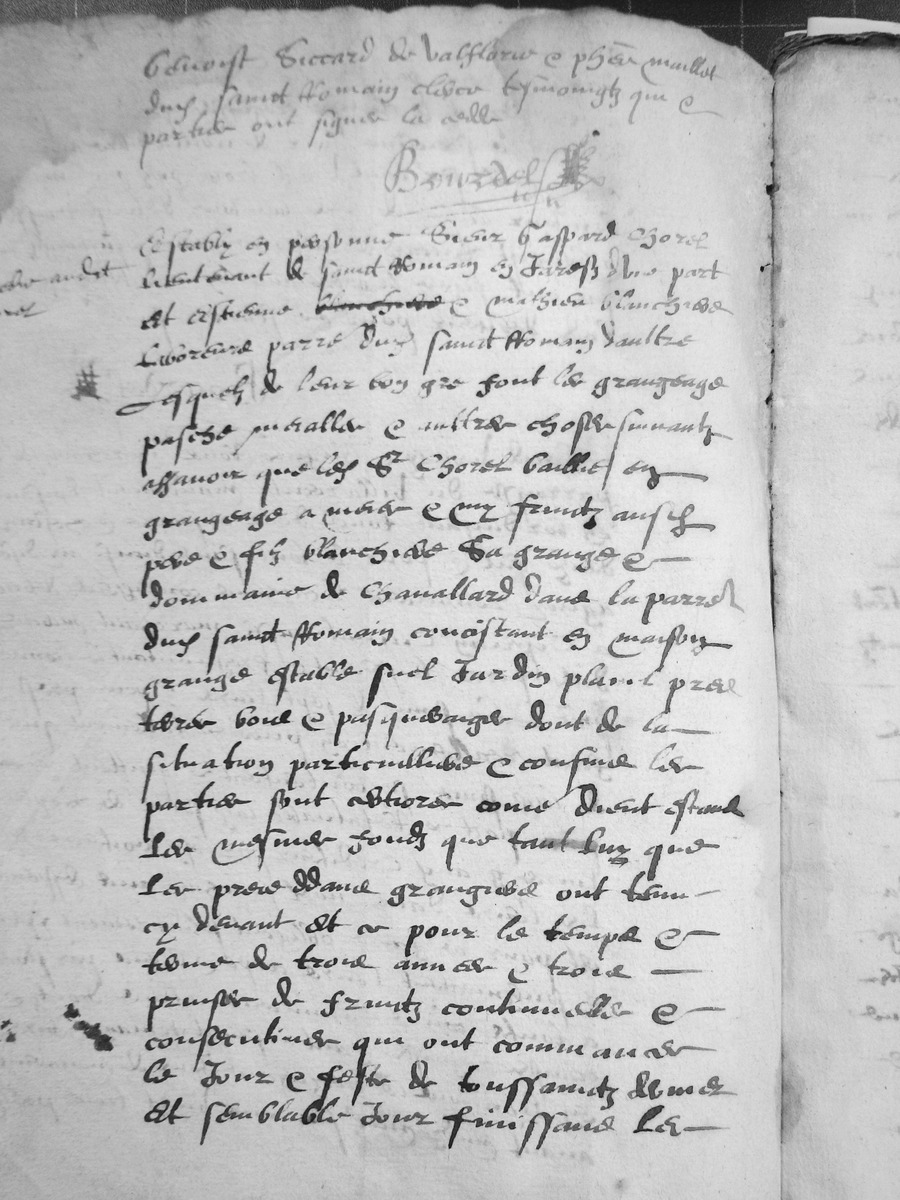 benoist Siccard de Valflorie & phēē maillot
dud sainct Romain clerc tesmoingtz qui &
parties ont signe la cedde
Bourdel
Estably en personne Sieur Gaspard Chorel
lieutenant de sainct Romain en Jarestz dune part
et Estienne & mathieu blanchiere
parre dud sainct Romain daultre
Lesquelz de leur bon gre font les grangeage
pasche & aultres choses suivantz
assavoir que led Sr Chorel baille en
grangeage a & my fruictz ausd
pere & filz blanchiere Sa grange &
dommaine de Chavallard dans la parre
dud sainct Romain concistant en maison
grange estable suel Jardin plantt prez
terres bois & pasquerages dont de la
situation particulliere & confins les
parties sont certiores come dient estans
les mesmes fondz que tant luy que
les grangiers ont tenu
cy devant et ce pour le temps &
terme de trois annees & trois
prinses de fruictz continuelles &
consecutives qui ont commancer
le Jour & feste de toussainctz dernier
et semblable Jour finissans les
audit